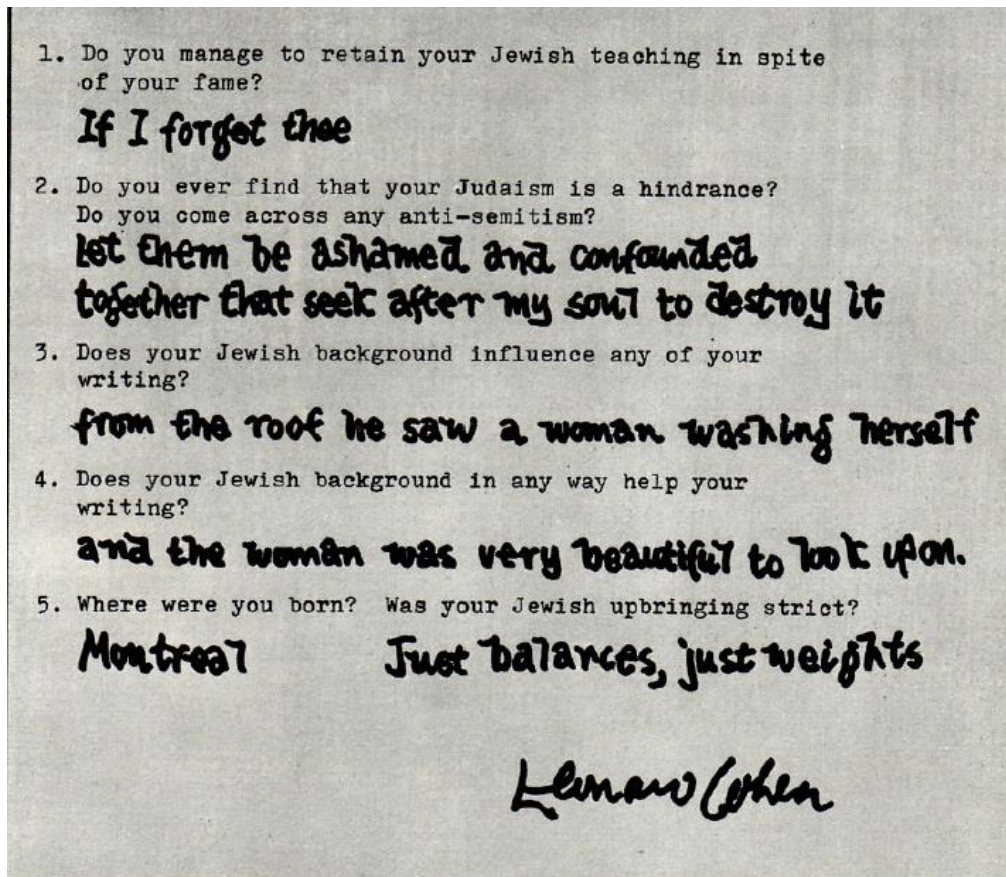 1. Do you manage to retain your Jewish teaching in spite
of your fame?
If I forget thee
2. Do you ever find that your Judaism is a hindrance?
Do you come across any anti-semitism?
let them be ashamed and confounded
together that seek after my soul to destroy it
3. Does your Jewish background influence any of your
writing?
from the roof he saw a woman washing herself
4. Does your Jewish background in any way help your
writing?
and the woman was very beautiful to look upon.
5. Where were you born? Was your Jewish upbringing strict?
Montreal Just balances, just weights
Leonard Cohen